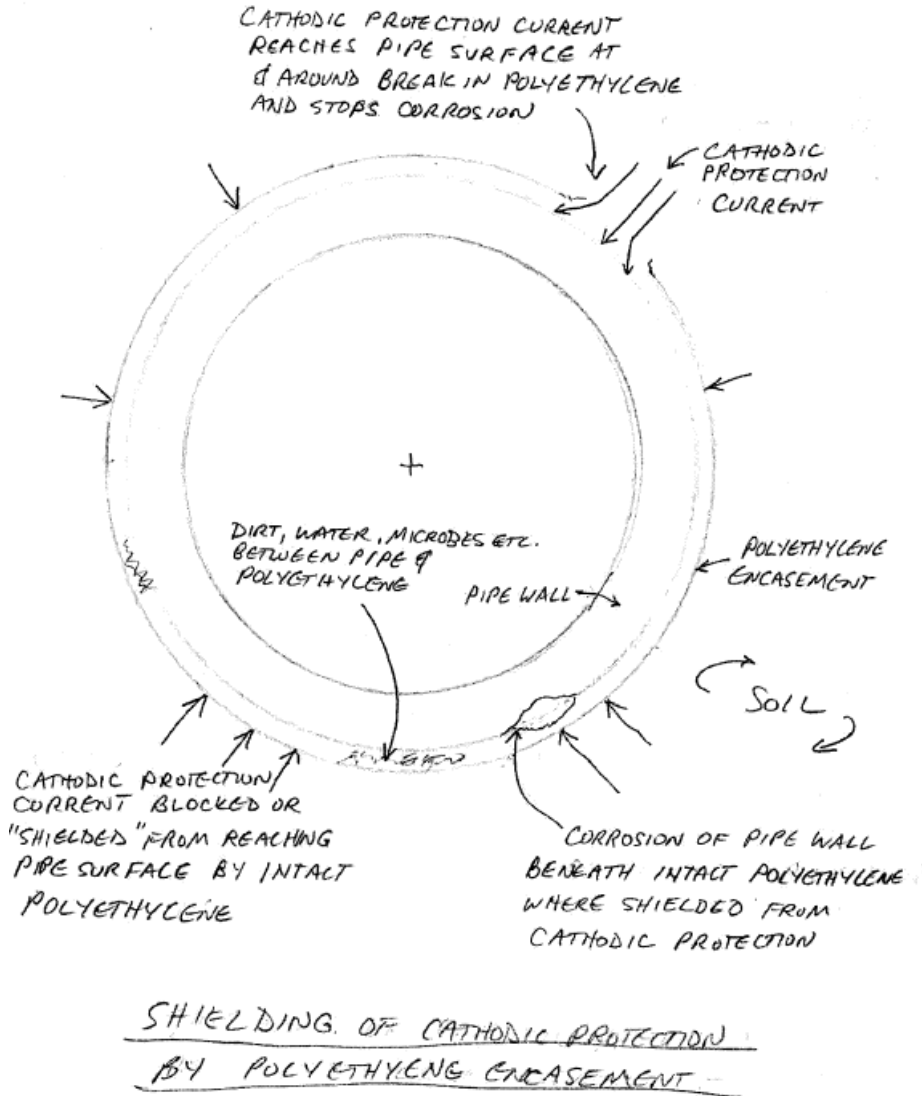 CATHODIC PROTECTION CURRENT
REACHES PIPE SURFACE AT
& AROUND BREAK IN POLYETHYLENE
AND STOPS CORROSION
CATHODIC
PROTECTION
CURRENT
DIRT, WATER, MICROBES ETC.
BETWEEN PIPE &
POLYETHYLENE
PIPE WALL
POLYETHYLENE
ENCASEMENT
SOIL
CATHODIC PROTECTION
CURRENT BLOCKED OR
"SHIELDED" FROM REACHING
PIPE SURFACE BY INTACT
POLYETHYLENE
CORROSION OF PIPE WALL
BENEATH INTACT POLYETHYLENE
WHERE SHIELDED FROM
CATHODIC PROTECTION
SHIELDING OF CATHODIC PROTECTION
BY POLYETHYENE ENCASEMENT